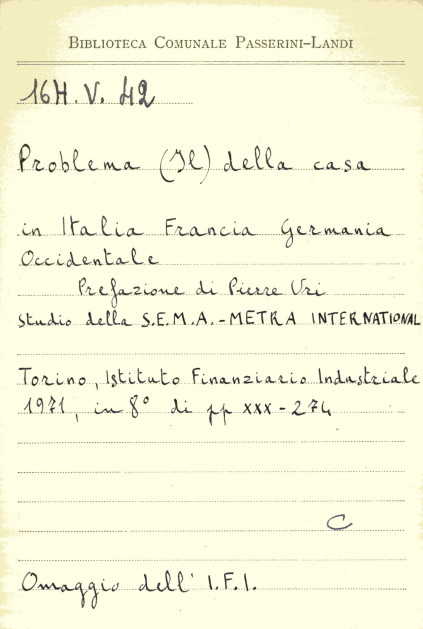 BIBLIOTECA COMUNALE PASSERINI-LANDI
16H. V. 42
Problema (Il) della casa
in Italia Francia Germania
Occidentale
Prefazione di Pierre Uri
studio della S.E.M.A.-METRA INTERNATIONAL
Torino, Istituto Finanziario Industriale
1971, in 8° di pp XXX-274
C
Omaggio dell' I.F.I.